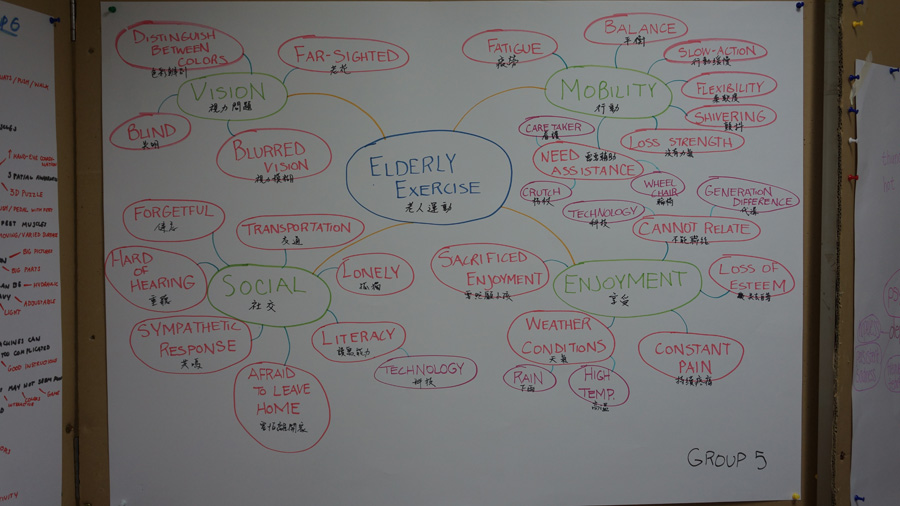 ELDERLY
EXERCISE
老人運動
VISION
視力問題
DISTINGUISH
BETWEEN
COLORS
FAR-SIGHTED
老花
BLIND
失明
BLURRED
VISION
視力模糊
MOBILITY
行動
FATIGUE
疲勞
BALANCE
平衡
SLOW-ACTION
行動緩慢
FLEXIBILITY
柔軟度
SHIVERING
顫抖
LOSS STRENGTH
沒有力氣
NEED 需要輔助
ASSISTANCE
CARE TAKER
看護
CRUTCH
拐杖
TECHNOLOGY
科技
WHEEL
CHAIR
輪椅
SOCIAL
社交
FORGETFUL
健忘
TRANSPORTATION
交通
HARD
OF
HEARING
重聽
LONELY
孤獨
SYMPATHETIC
RESPONSE
共鳴
LITERACY
讀寫能力
TECHNOLOGY
科技
AFRAID
TO LEAVE
HOME
害怕離開家
ENJOYMENT
享受
SACRIFICED
ENJOYMENT
CANNOT RELATE
不能聯結
GENERATION
DIFFERENCE
代溝
LOSS OF
ESTEEM
WEATHER
CONDITIONS
天氣
RAIN
下雨
HIGH
TEMP.
高溫
CONSTANT
PAIN
持續疼痛
GROUP 5
3D PUZZLE
BIG PARTS
LIGHT
GOOD INSTRUCTIONS